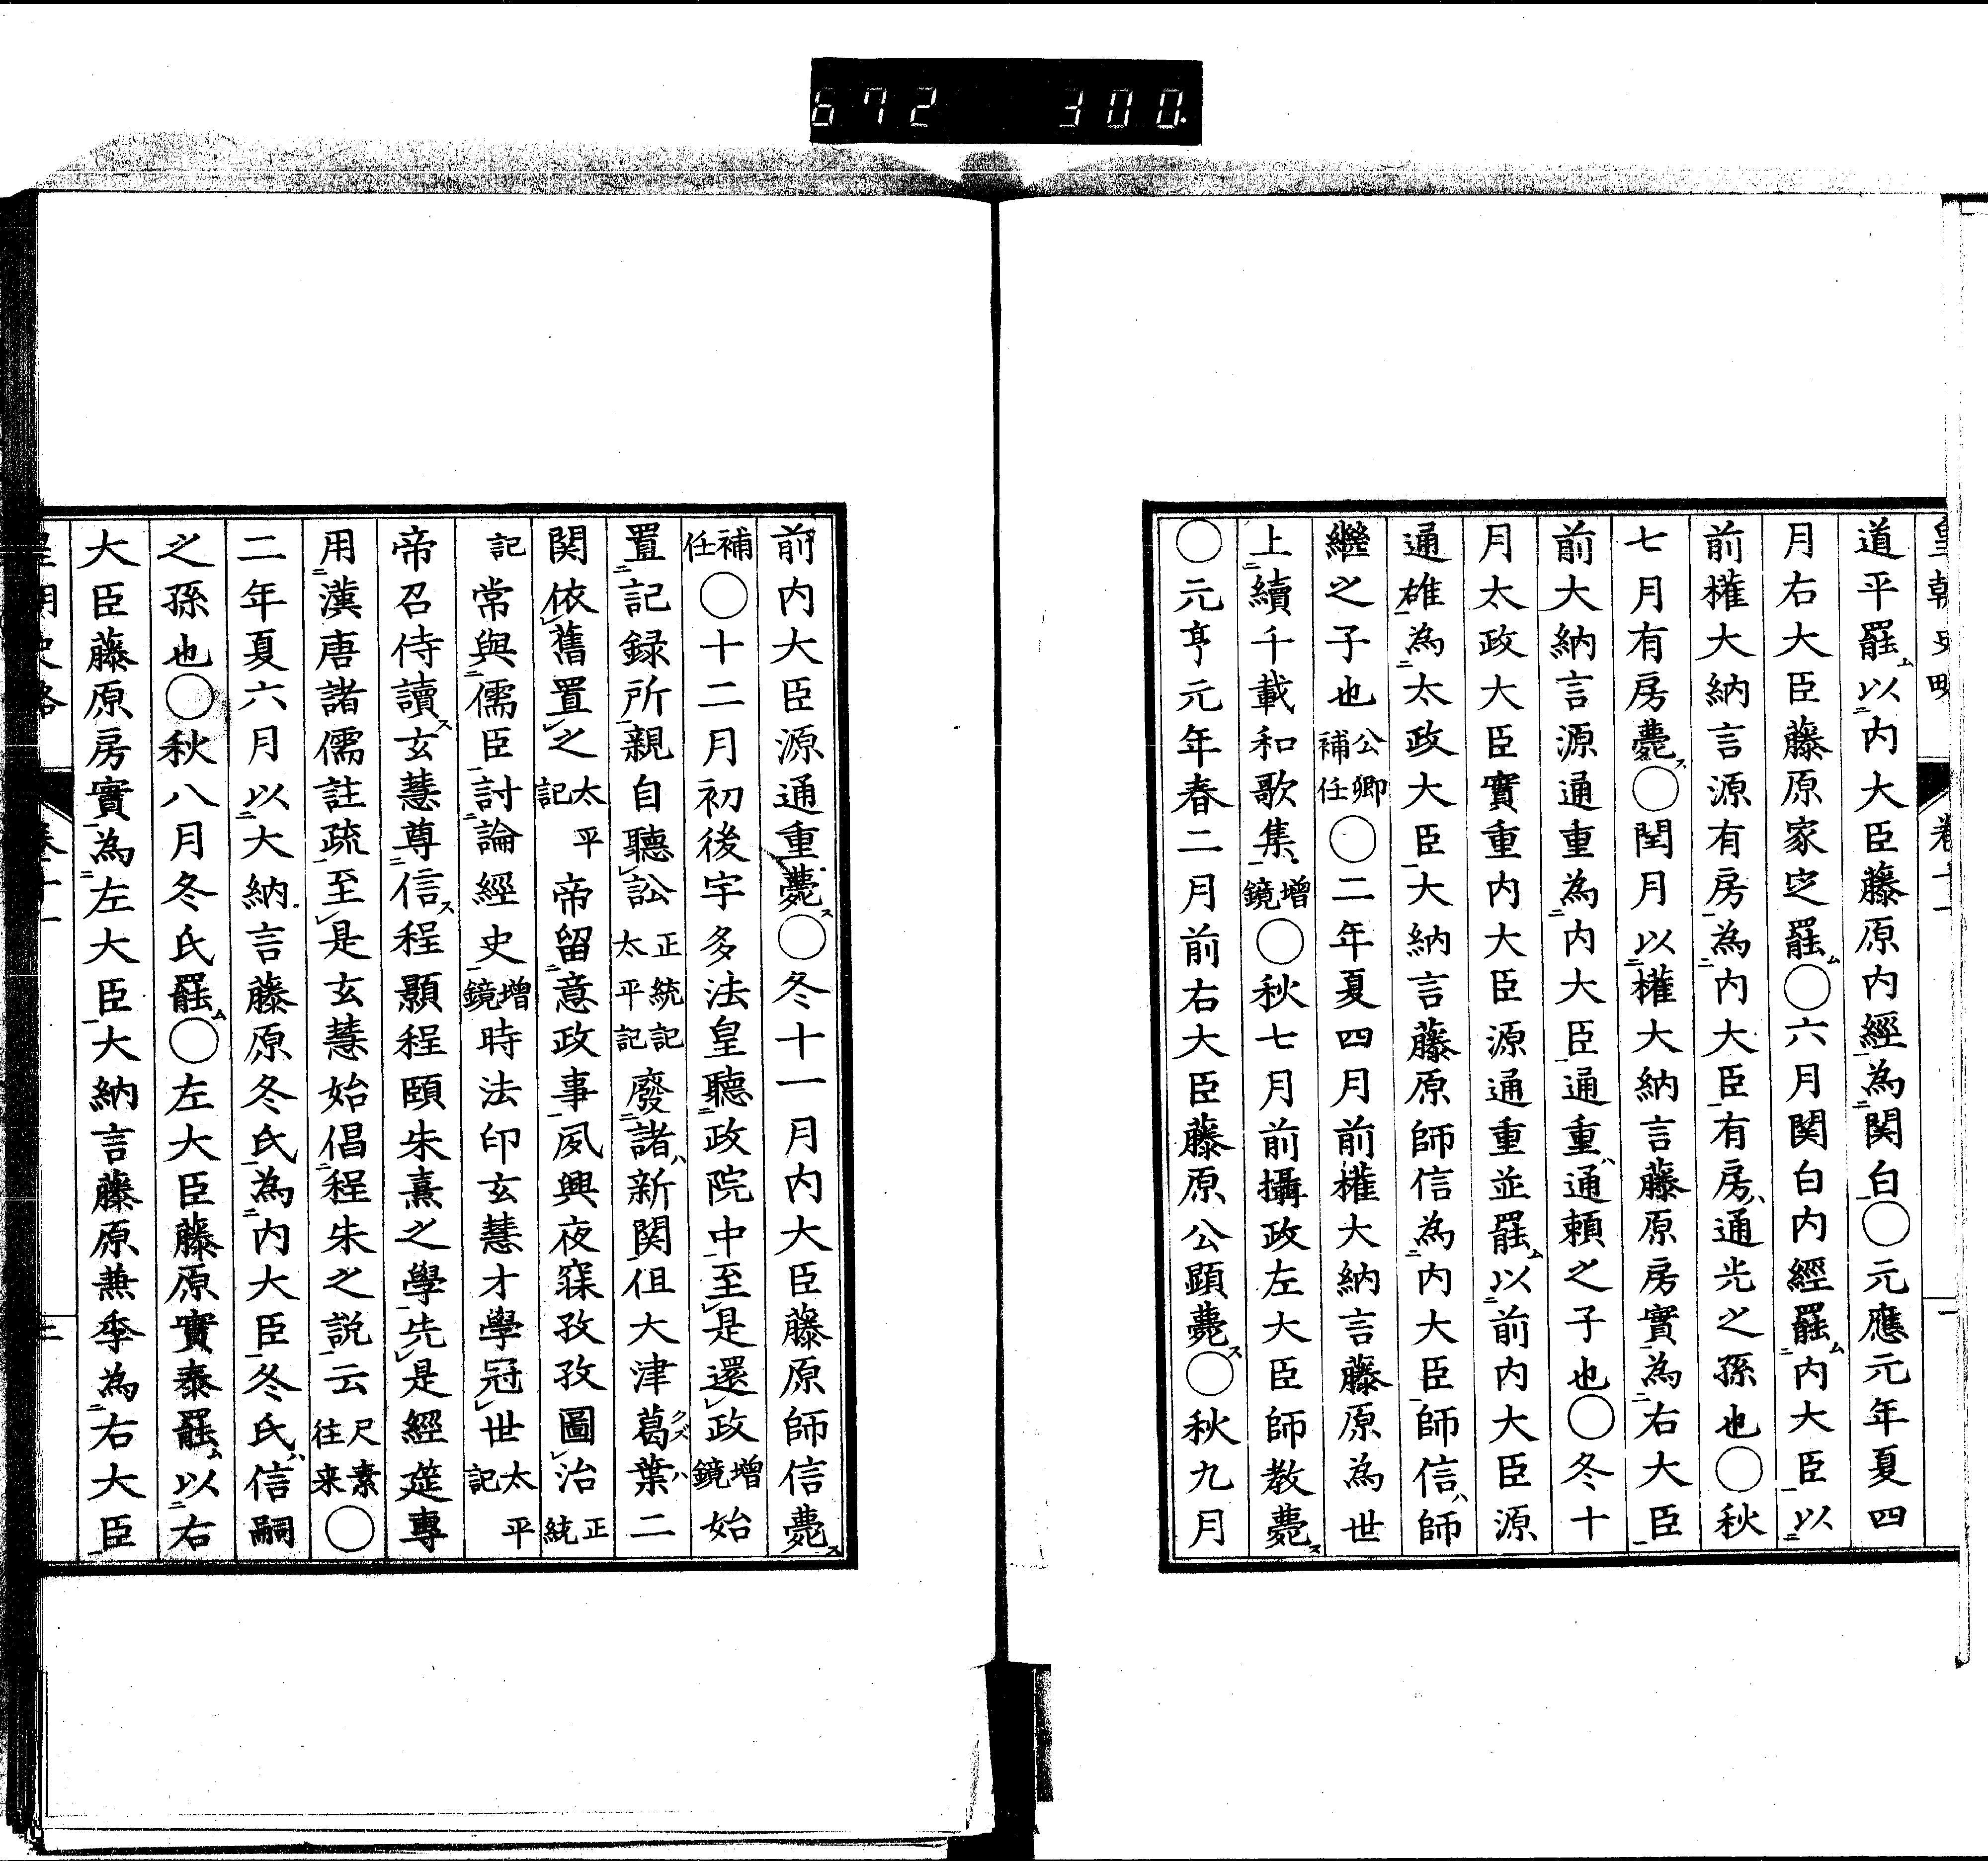 672 300.
皇朝史略 卷十一
道平罷ム以二内大臣藤原内經一為二関白一〇元應元年夏四
月右大臣藤原家定罷ム〇六月関白内經罷ム二内大臣一以二
前權大納言源有房一為二内大臣一有房ハ通光之孫也〇秋
七月有房薨ス〇閏月以二權大納言藤原房實一為二右大臣一
前大納言源通重為二内大臣一通重ハ通頼之子也〇冬十
月太政大臣實重内大臣源通重並罷ム以二前内大臣源
通雄一為二太政大臣一大納言藤原師信為二内大臣一師信ハ師
繼之子也公卿補任〇二年夏四月前權大納言藤原為世
上二續千載和歌集一增鏡〇秋七月前攝政左大臣師教薨ス
〇元亨元年春二月前右大臣藤原公顕薨ス〇秋九月
前内大臣源通重薨ス〇冬十一月内大臣藤原師信薨ス
補任〇十二月初後宇多法皇聽二政院中一至レ是還レ政增鏡始
置二記録所一親自聽レ訟正統記太平記廢二諸ハ新関一但大津葛クズ葉ハ二
関依レ舊置レ之太平記帝留二意政事一夙興夜寐孜孜圖レ治正統
記常與二儒臣一討二論經史一增鏡時法印玄慧才學冠レ世太平記
帝召侍讀ス玄慧尊二信ス程顥程頤朱熹之學一先レ是經筵專
用二漢唐諸儒註疏一至レ是玄慧始倡二程朱之説一云尺素往来〇
二年夏六月以二大納言藤原冬氏一為二内大臣一冬氏ハ信嗣
之孫也〇秋八月冬氏罷ム〇左大臣藤原實泰罷ム以二右
大臣藤原房實一為二左大臣一大納言藤原兼季為二右大臣一
皇朝史略 卷十一 三